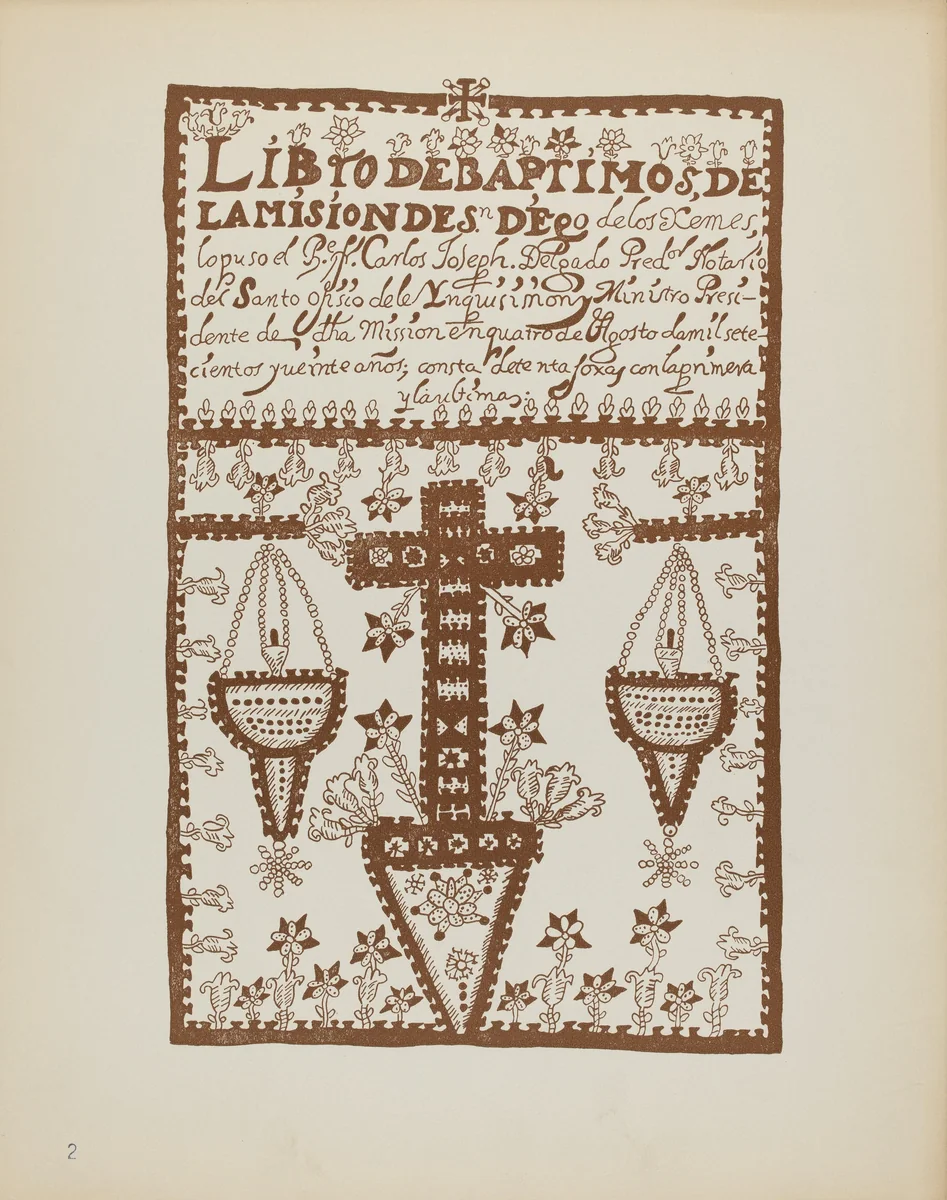 LIBrO DE BAPTIMOS, DE
LA MISION DE Sn. DIEgo de los Xemes,
lo puso el Pe. fr. Carlos Joseph. Delgado Predor Notario
del Santo ofisio de le Ynquisimon, y Ministro Presi-
dente de dha Mission en quatro de Agosto da mil sete-
cientos y veinte años; consta de te nta foxas con la primera
y la ultima:
2